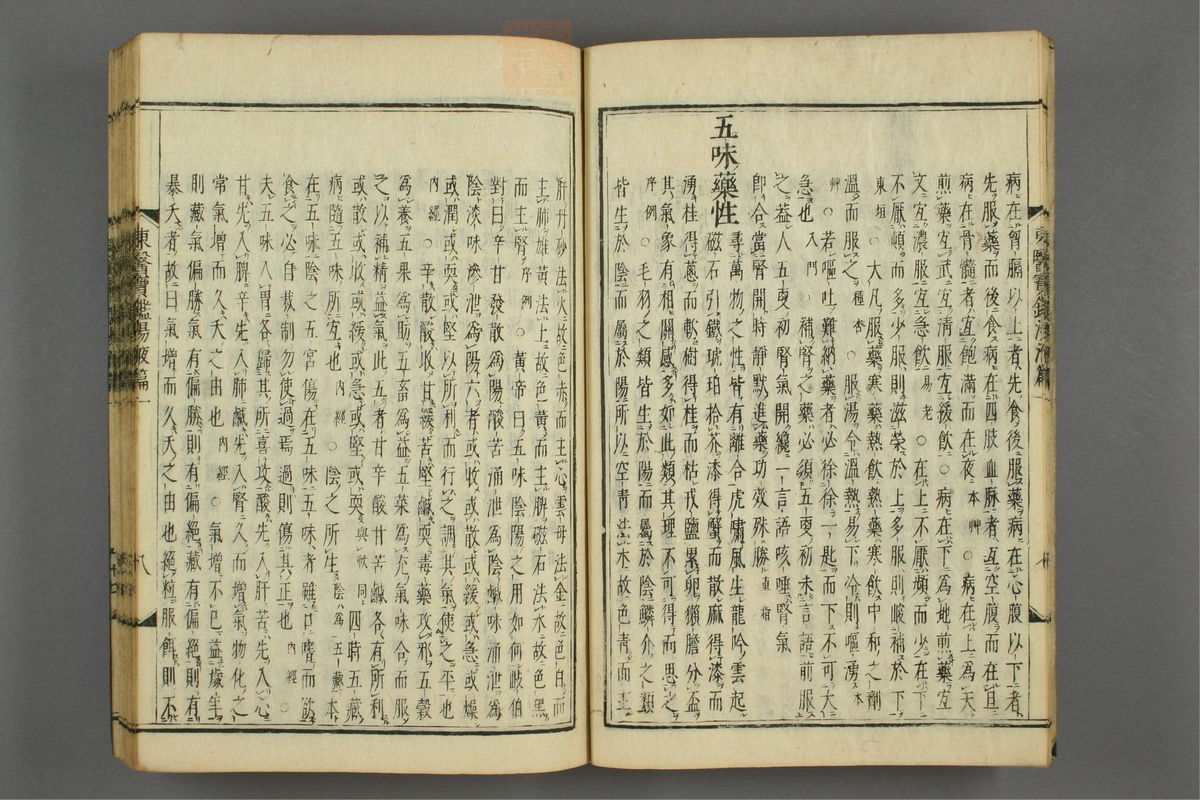 病在胷膈以上者先食後服藥病在心腹以下者
先服藥而後食病在四肢血脉者宜空腹而在旦
病在骨髓者宜飽滿而在夜 本艸 ○病在上為天
煎藥宜武宜清服宜緩飲○病在下為地煎藥宜
文宜濃服宜急飲 易老 ○在上不厭頻而少在下
不厭頓而多少服則滋榮於上多服則峻補於下
東垣 ○大凡服藥寒藥熱飲熱藥寒飲中和之劑
溫而服之 種杏 ○服湯令溫熱易下冷則嘔湧 本
艸 ○若嘔吐難納藥者必徐徐一匙而下不可大
急也 入門 ○補腎之藥必須五更初未言語前服
之益人五更初腎氣開纔一言語咳唾腎氣
即合當腎開時靜默進藥功效殊勝 直指
五味藥性 尋萬物之性皆有離合虎嘯風生龍吟雲起
磁石引鐵琥珀拾芥漆得蟹而散麻得漆而
湧桂得蔥而軟樹得桂而枯戎鹽累卵獺膽分盃
其氣象有相關感多如此類其理不可得而思之
序例 ○毛羽之類皆生於陽而屬於陰鱗介之類
皆生於陰而屬於陽所以空青法木故色青而主
肝丹砂法火故色赤而主心雲母法金故色白而
主肺雄黃法土故色黃而主脾磁石法水故色黑
而主腎 序例 ○黃帝曰五味陰陽之用如何歧伯
對曰辛甘發散為陽酸苦涌泄為陰鹹味涌泄為
陰淡味滲泄為陽六者或收或散或緩或急或燥
或潤或耎或堅以所利而行之調其氣使之平也
內經 ○辛散酸收甘緩苦堅鹹耎毒藥攻邪五穀
為養五果為助五畜為益五菜為充氣味合而服
之以補精益氣此五者甘辛酸甘苦鹹各有所利
或散或收或緩或急或堅或耎 與軟同 四時五藏
病隨五味所宜也 內經 ○陰之所生 陰八為五藏 本
在五味陰之五宮傷在五味五味者雖口嗜而飲
食之必自裁制勿使過焉過則傷其正也 內經 ○
夫五味入胃各歸其所喜攻酸先入肝苦先入心
甘先入脾辛先入肺鹹先入腎久而增氣物化之
常氣增而久夭之由也 內經 ○氣增不已益歲年
則藏氣偏勝氣有偏勝則有偏絕藏有偏絕則有
暴夭者故曰氣增而久夭之由也絕粒服餌則不
東醫寶鑑湯液篇一
八